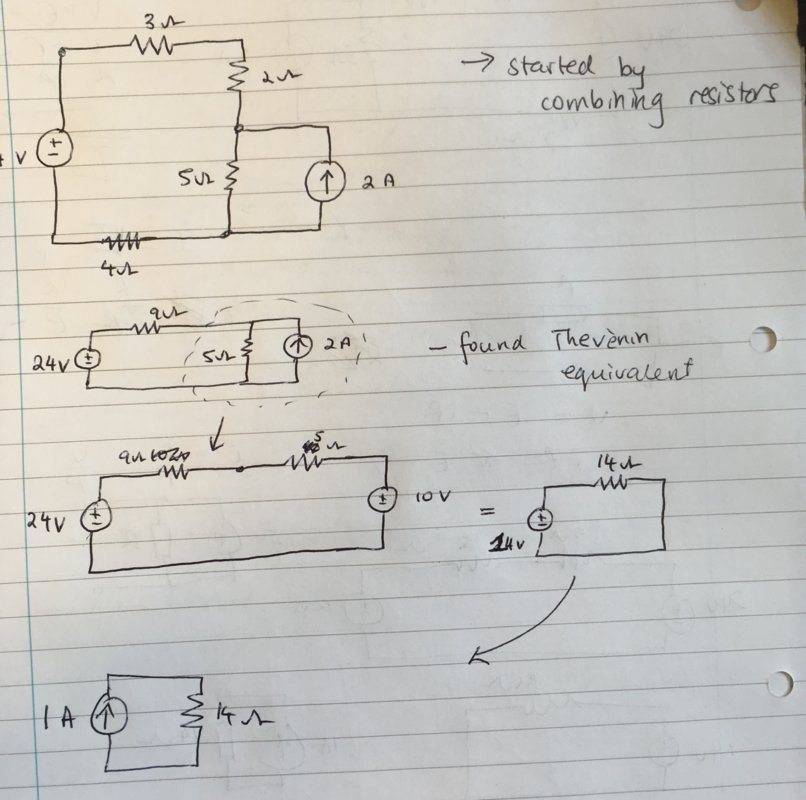 3Ω
2Ω
→ started by
combining resistors
V
5Ω
2 A
4Ω
9Ω
24V
5Ω
2A
- found Thevènin
equivalent
9Ω
5Ω
24V
10 V
=
14Ω
14V
1 A
14Ω